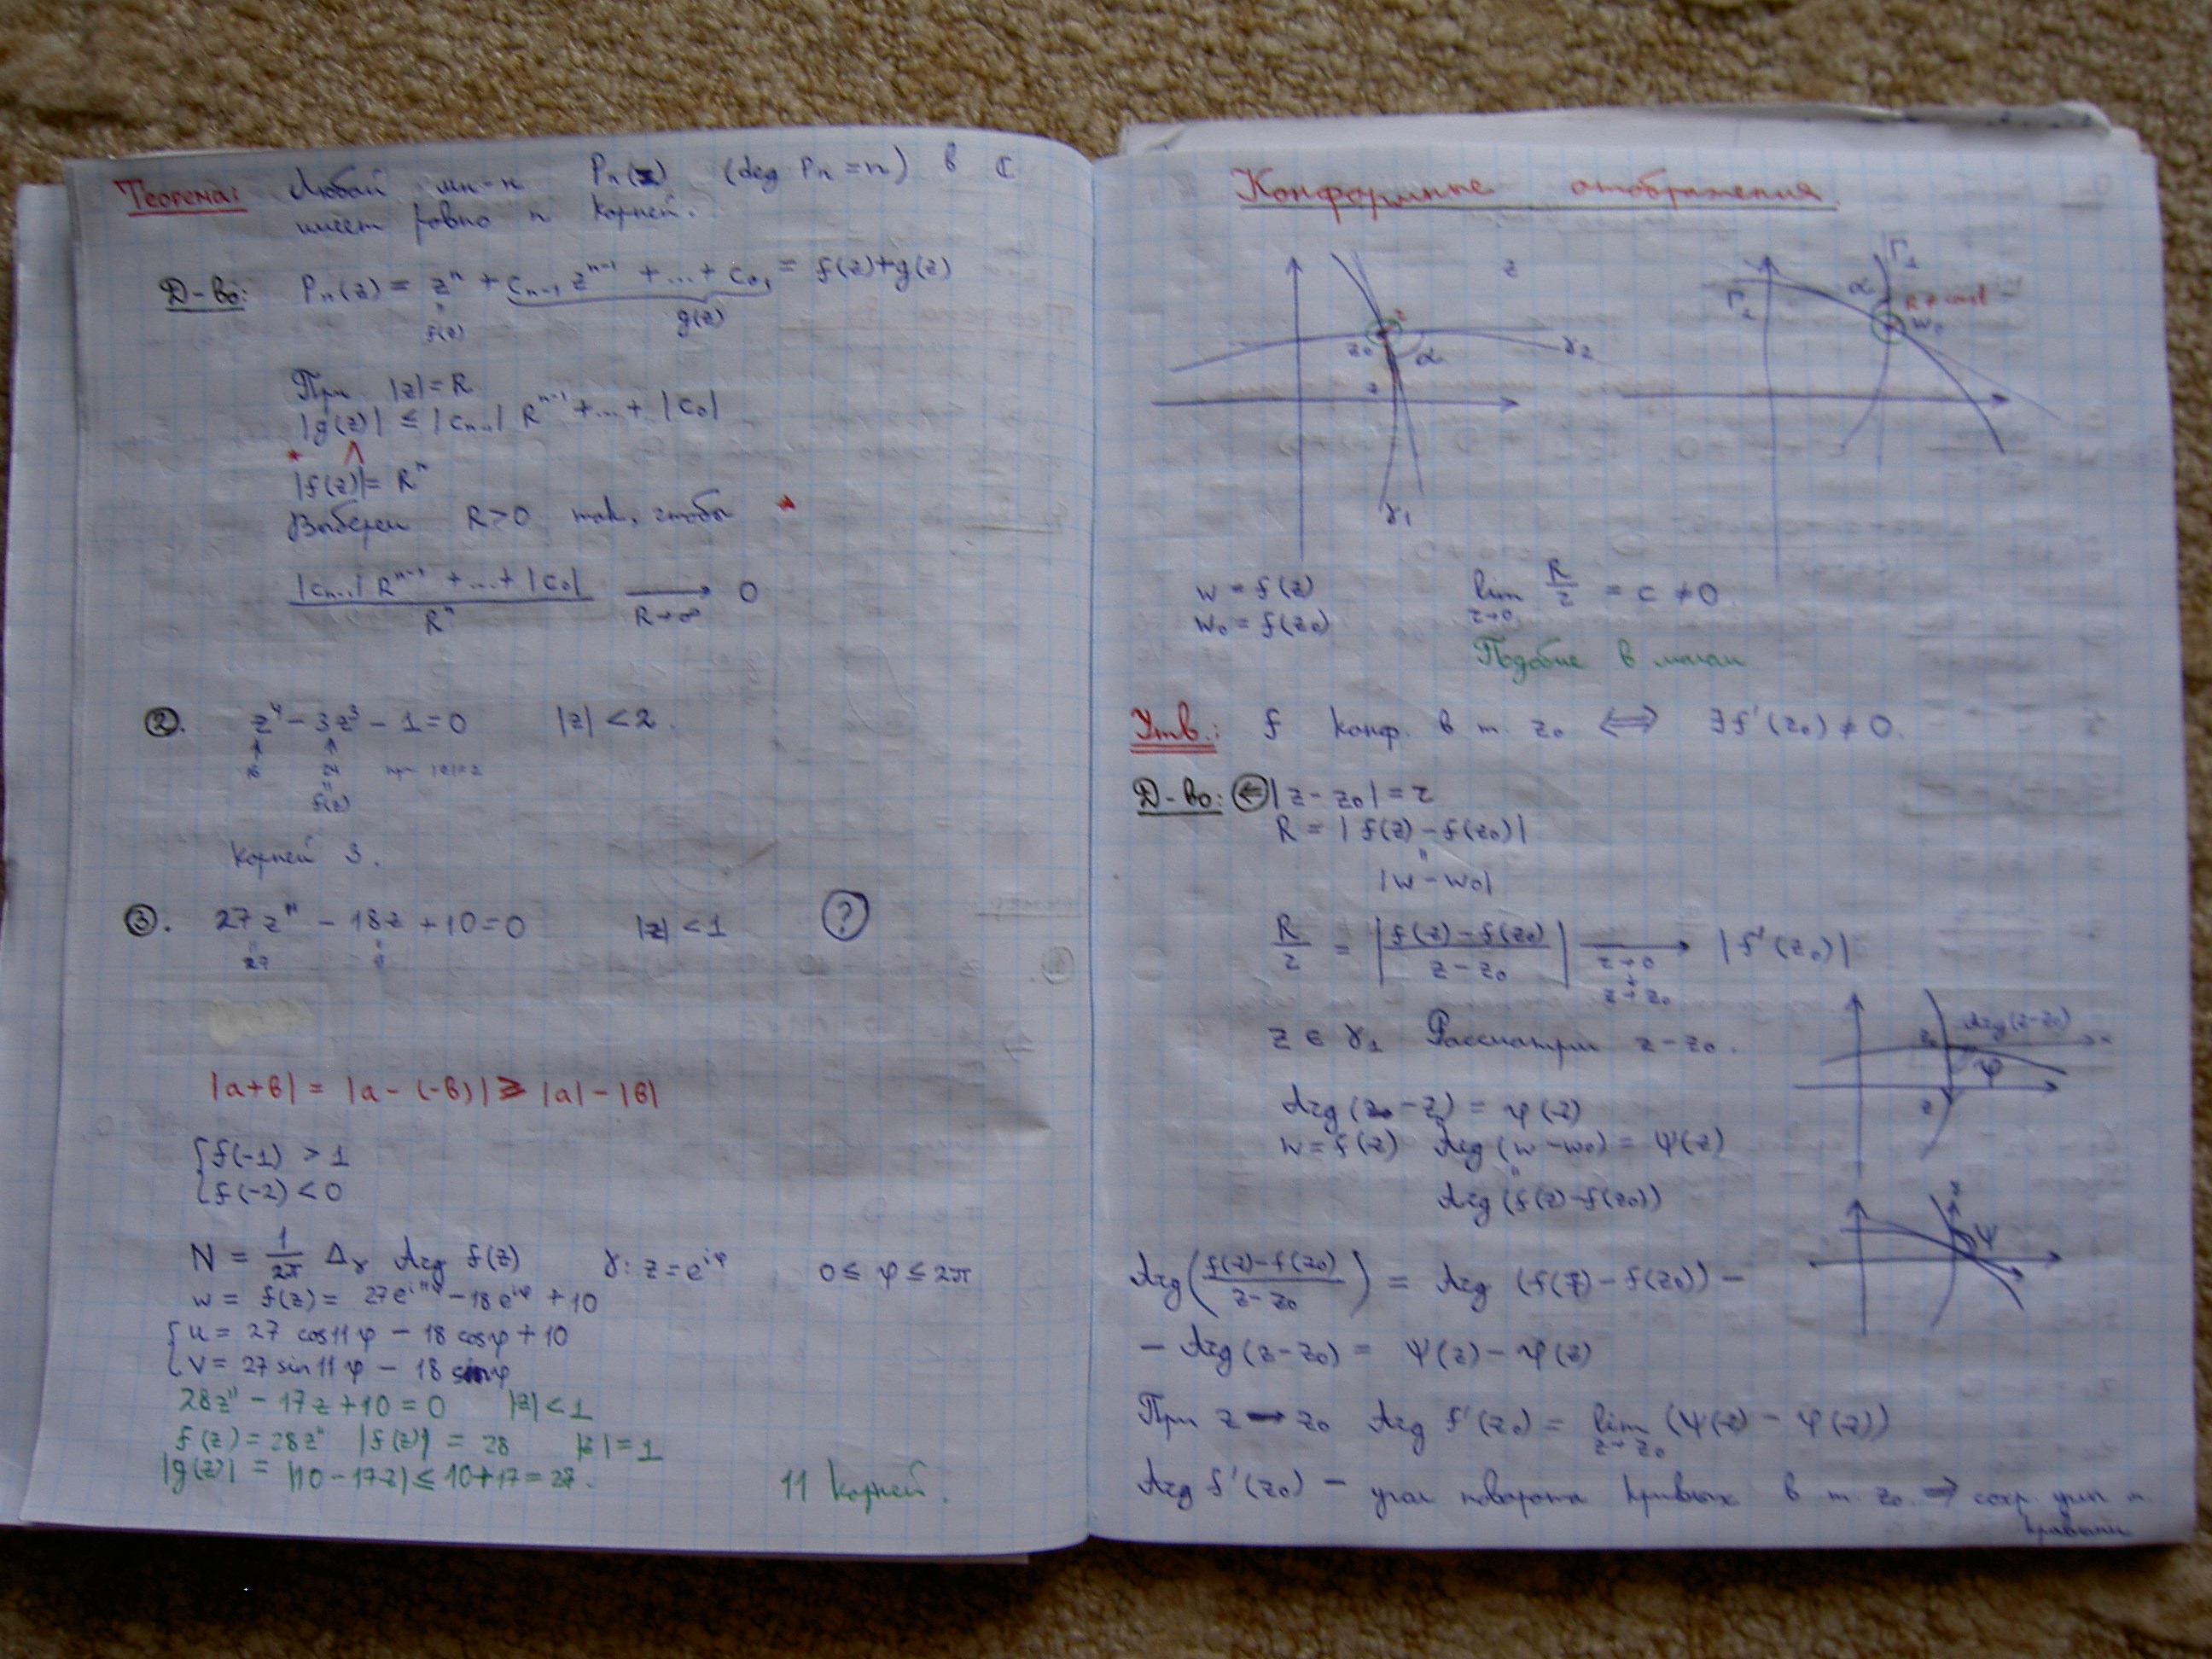 Теорема: Любой мн-н Pₙ(z) (deg Pₙ = n) в ℂ
имеет ровно n корней.
Д-во: Pₙ(z) = zⁿ + cₙ₋₁ zⁿ⁻¹ + ... + c₀, = f(z)+g(z)
f(z) g(z)
При |z| = R
|g(z)| ≤ |cₙ₋₁| Rⁿ⁻¹ + ... + |c₀|
* ∧
|f(z)| = Rⁿ
Выберем R>0 так, чтобы *
(|cₙ₋₁| Rⁿ⁻¹ + ... + |c₀|) / Rⁿ → 0
R→∞
②. z⁴ - 3z³ - 1 = 0 |z| < 2.
16 24 при |z|=2
f(z)
Корней 3.
③. 27z¹¹ - 18z + 10 = 0 |z| < 1 ?
27
|a+b| = |a-(-b)| ≥ |a| - |b|
{ f(-1) > 1
f(-2) < 0
N = 1/2π Δ_γ Arg f(z) γ: z = e^{iφ} 0 ≤ φ ≤ 2π
w = f(z) = 27e^{i11φ} - 18e^{iφ} + 10
{ u = 27 cos11φ - 18 cosφ + 10
v = 27 sin11φ - 18 sinφ
28z¹¹ - 17z + 10 = 0 |z| < 1
f(z) = 28z¹¹ |f(z)| = 28 |z| = 1
|g(z)| = |10 - 17z| ≤ 10 + 17 = 27. 11 корней.
Конформные отображения.
z
z₀ r α γ₂
z
γ₁
Γ₁
Γ₂ α R ≠ const
w₀
w = f(z) lim R/r = c ≠ 0
w₀ = f(z₀) r→0
Подобие в малом
Утв.: f конф. в т. z₀ ⟺ ∃ f'(z₀) ≠ 0.
Д-во: ⇐ |z - z₀| = r
R = |f(z) - f(z₀)|
|w - w₀|
R/r = |(f(z) - f(z₀)) / (z - z₀)| → |f'(z₀)|
r→0
z→z₀
z ∈ γ₁ Рассмотрим z - z₀.
z₀ Arg(z-z₀)
φ
z
Arg(z₀ - z) = φ(z)
w = f(z) Arg(w - w₀) = ψ(z)
Arg(f(z) - f(z₀))
ψ
Arg((f(z) - f(z₀)) / (z - z₀)) = Arg(f(z) - f(z₀)) -
- Arg(z - z₀) = ψ(z) - φ(z)
При z → z₀ Arg f'(z₀) = lim (ψ(z) - φ(z))
z→z₀
Arg f'(z₀) - угол поворота кривых в т. z₀. ⇒ сохр. углы м.
кривыми